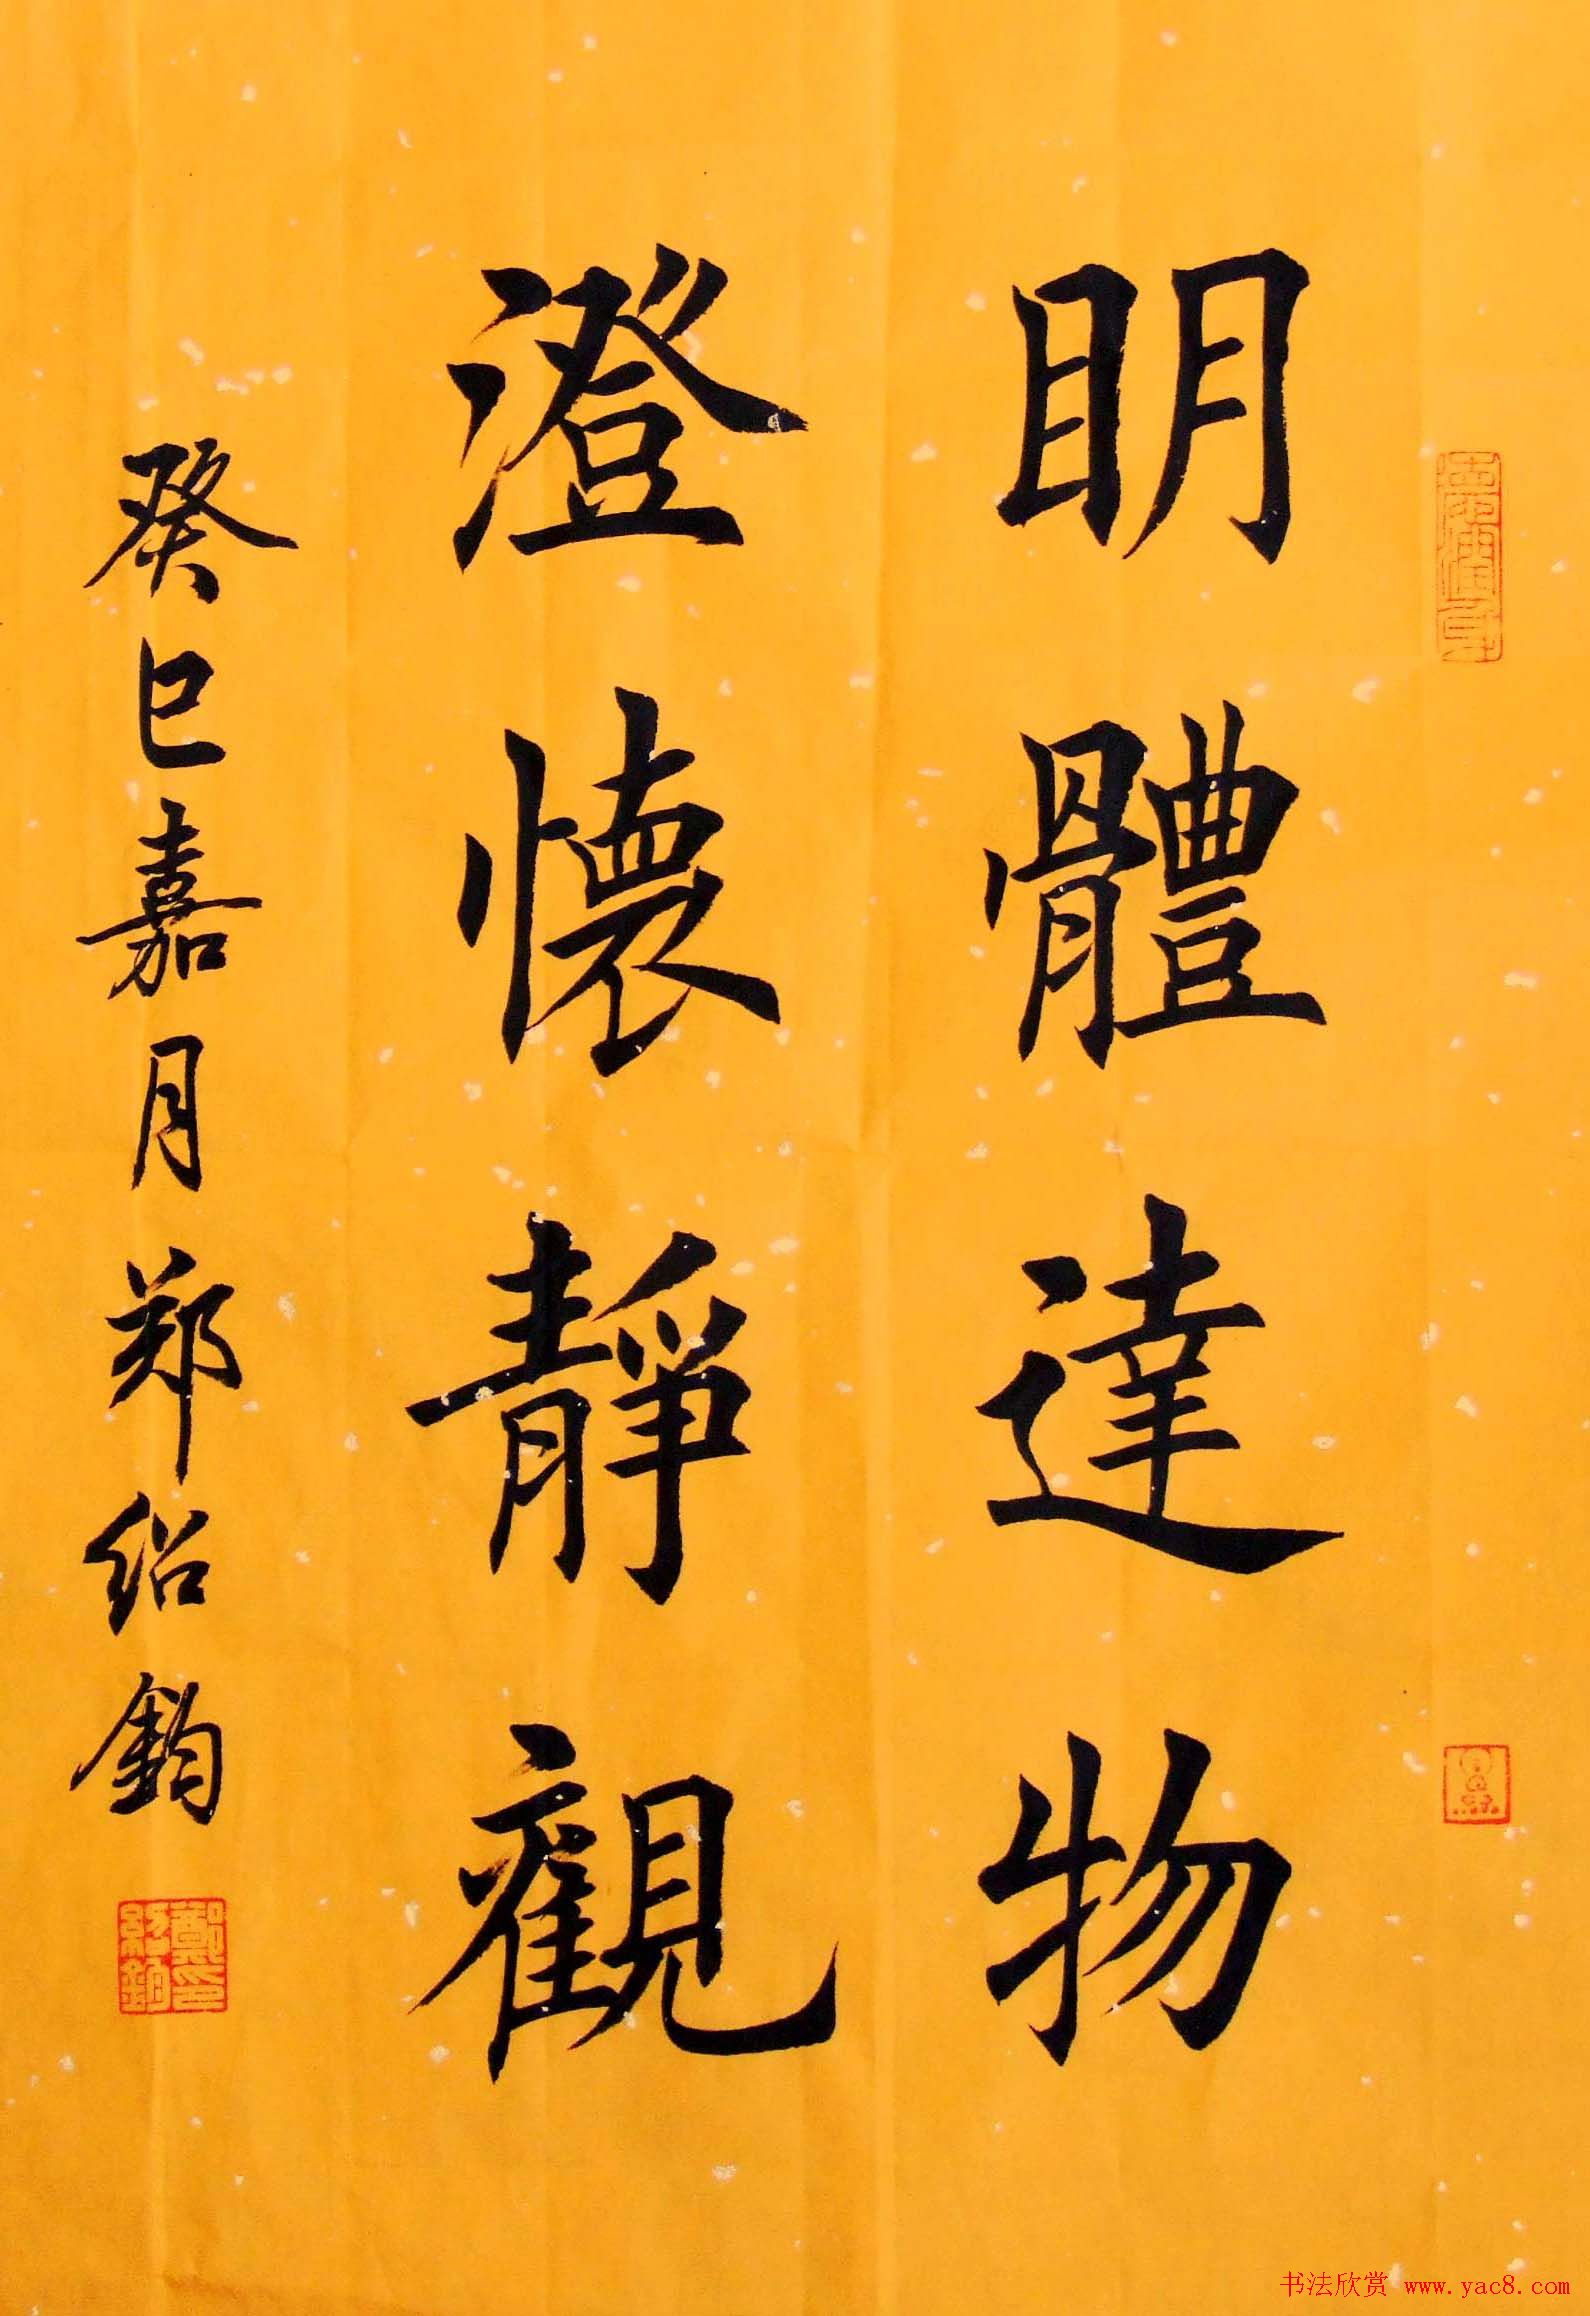 明體達物
澄懷靜觀
癸巳嘉月郑绍鈞
鄭印紹鈞
书法欣赏 www.yac8.com